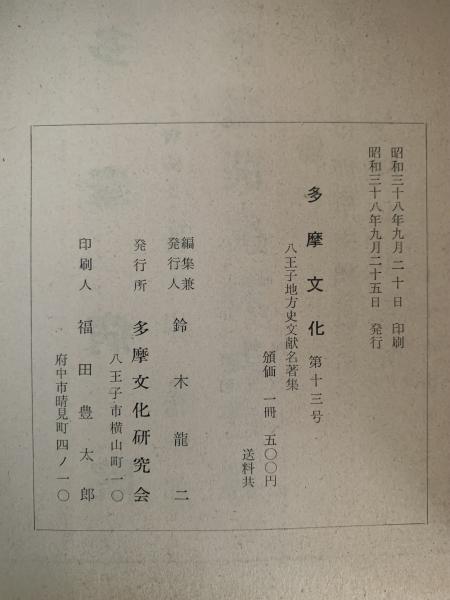 昭和三十八年九月二十日 印刷
昭和三十八年九月二十五日 発行
多摩文化 第十三号
八王子地方史文献名著集
頒価 一冊 五〇〇円
送料共
編集兼発行人 鈴木龍二
発行所 多摩文化研究会
八王子市横山町一〇
印刷人 福田豊太郎
府中市晴見町四ノ一〇